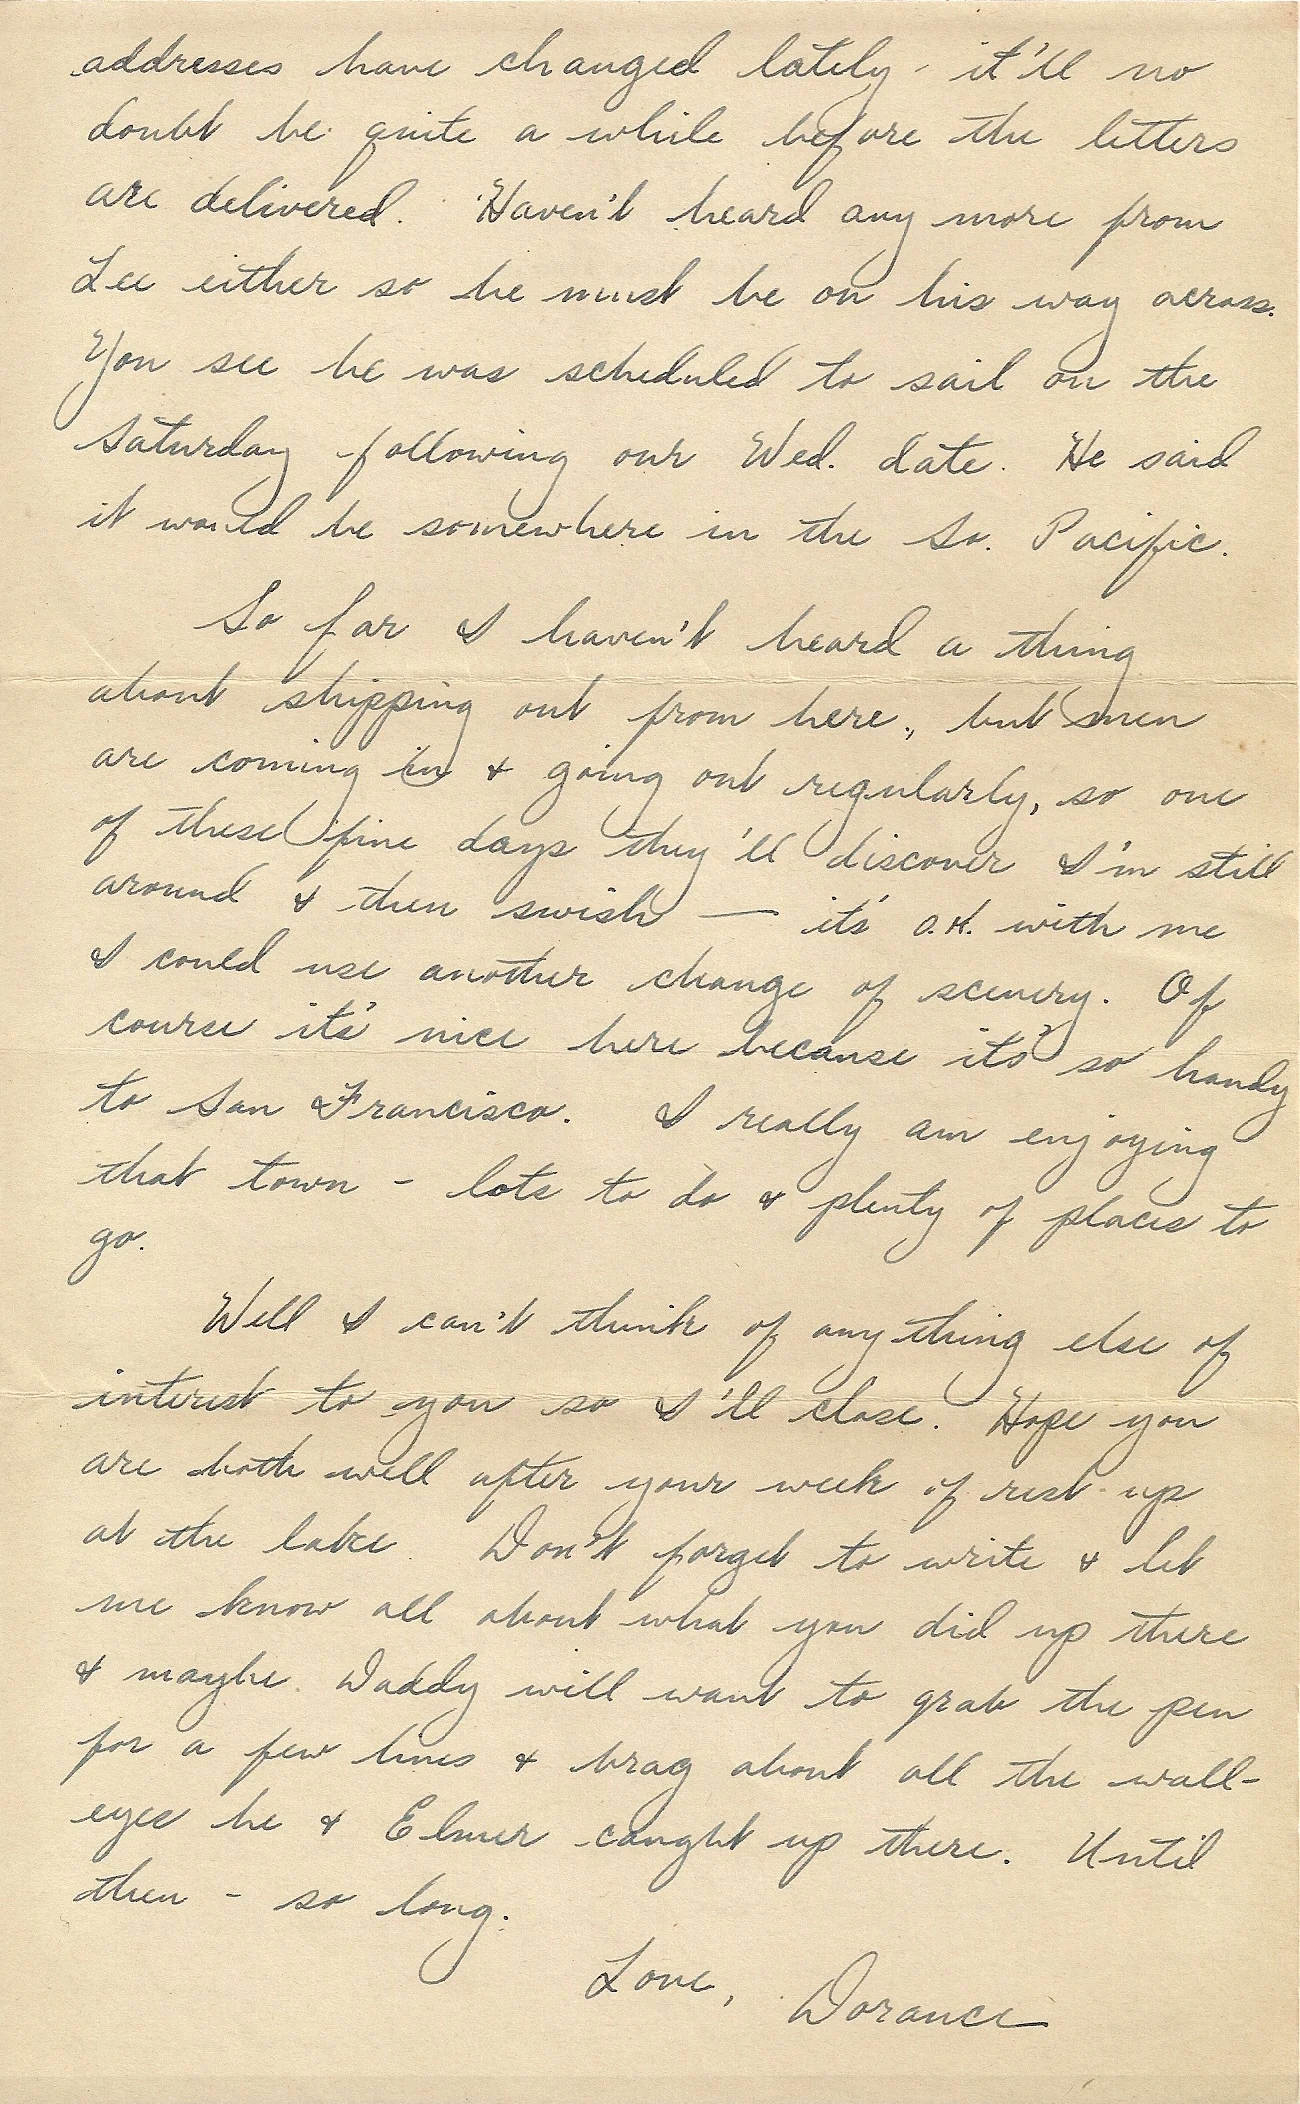 addresses have changed lately - it'll no
doubt be quite a while before the letters
are delivered. Haven't heard any more from
Lee either so he must be on his way across.
You see he was scheduled to sail on the
Saturday following our Wed. date. He said
it would be somewhere in the So. Pacific.
So far I haven't heard a thing
about shipping out from here, but men
are coming in & going out regularly, so one
of these fine days they'll discover I'm still
around & then swish — it's O.K. with me
I could use another change of scenery. Of
course it's nice here because it's so handy
to San Francisco. I really am enjoying
that town - lots to do & plenty of places to
go.
Well I can't think of anything else of
interest to you so I'll close. Hope you
are both well after your week of rest up
at the lake. Don't forget to write & let
me know all about what you did up there
& maybe Daddy will want to grab the pen
for a few lines & brag about all the wall-
eyes he & Elmer caught up there. Until
then - so long.
Love, Dorance